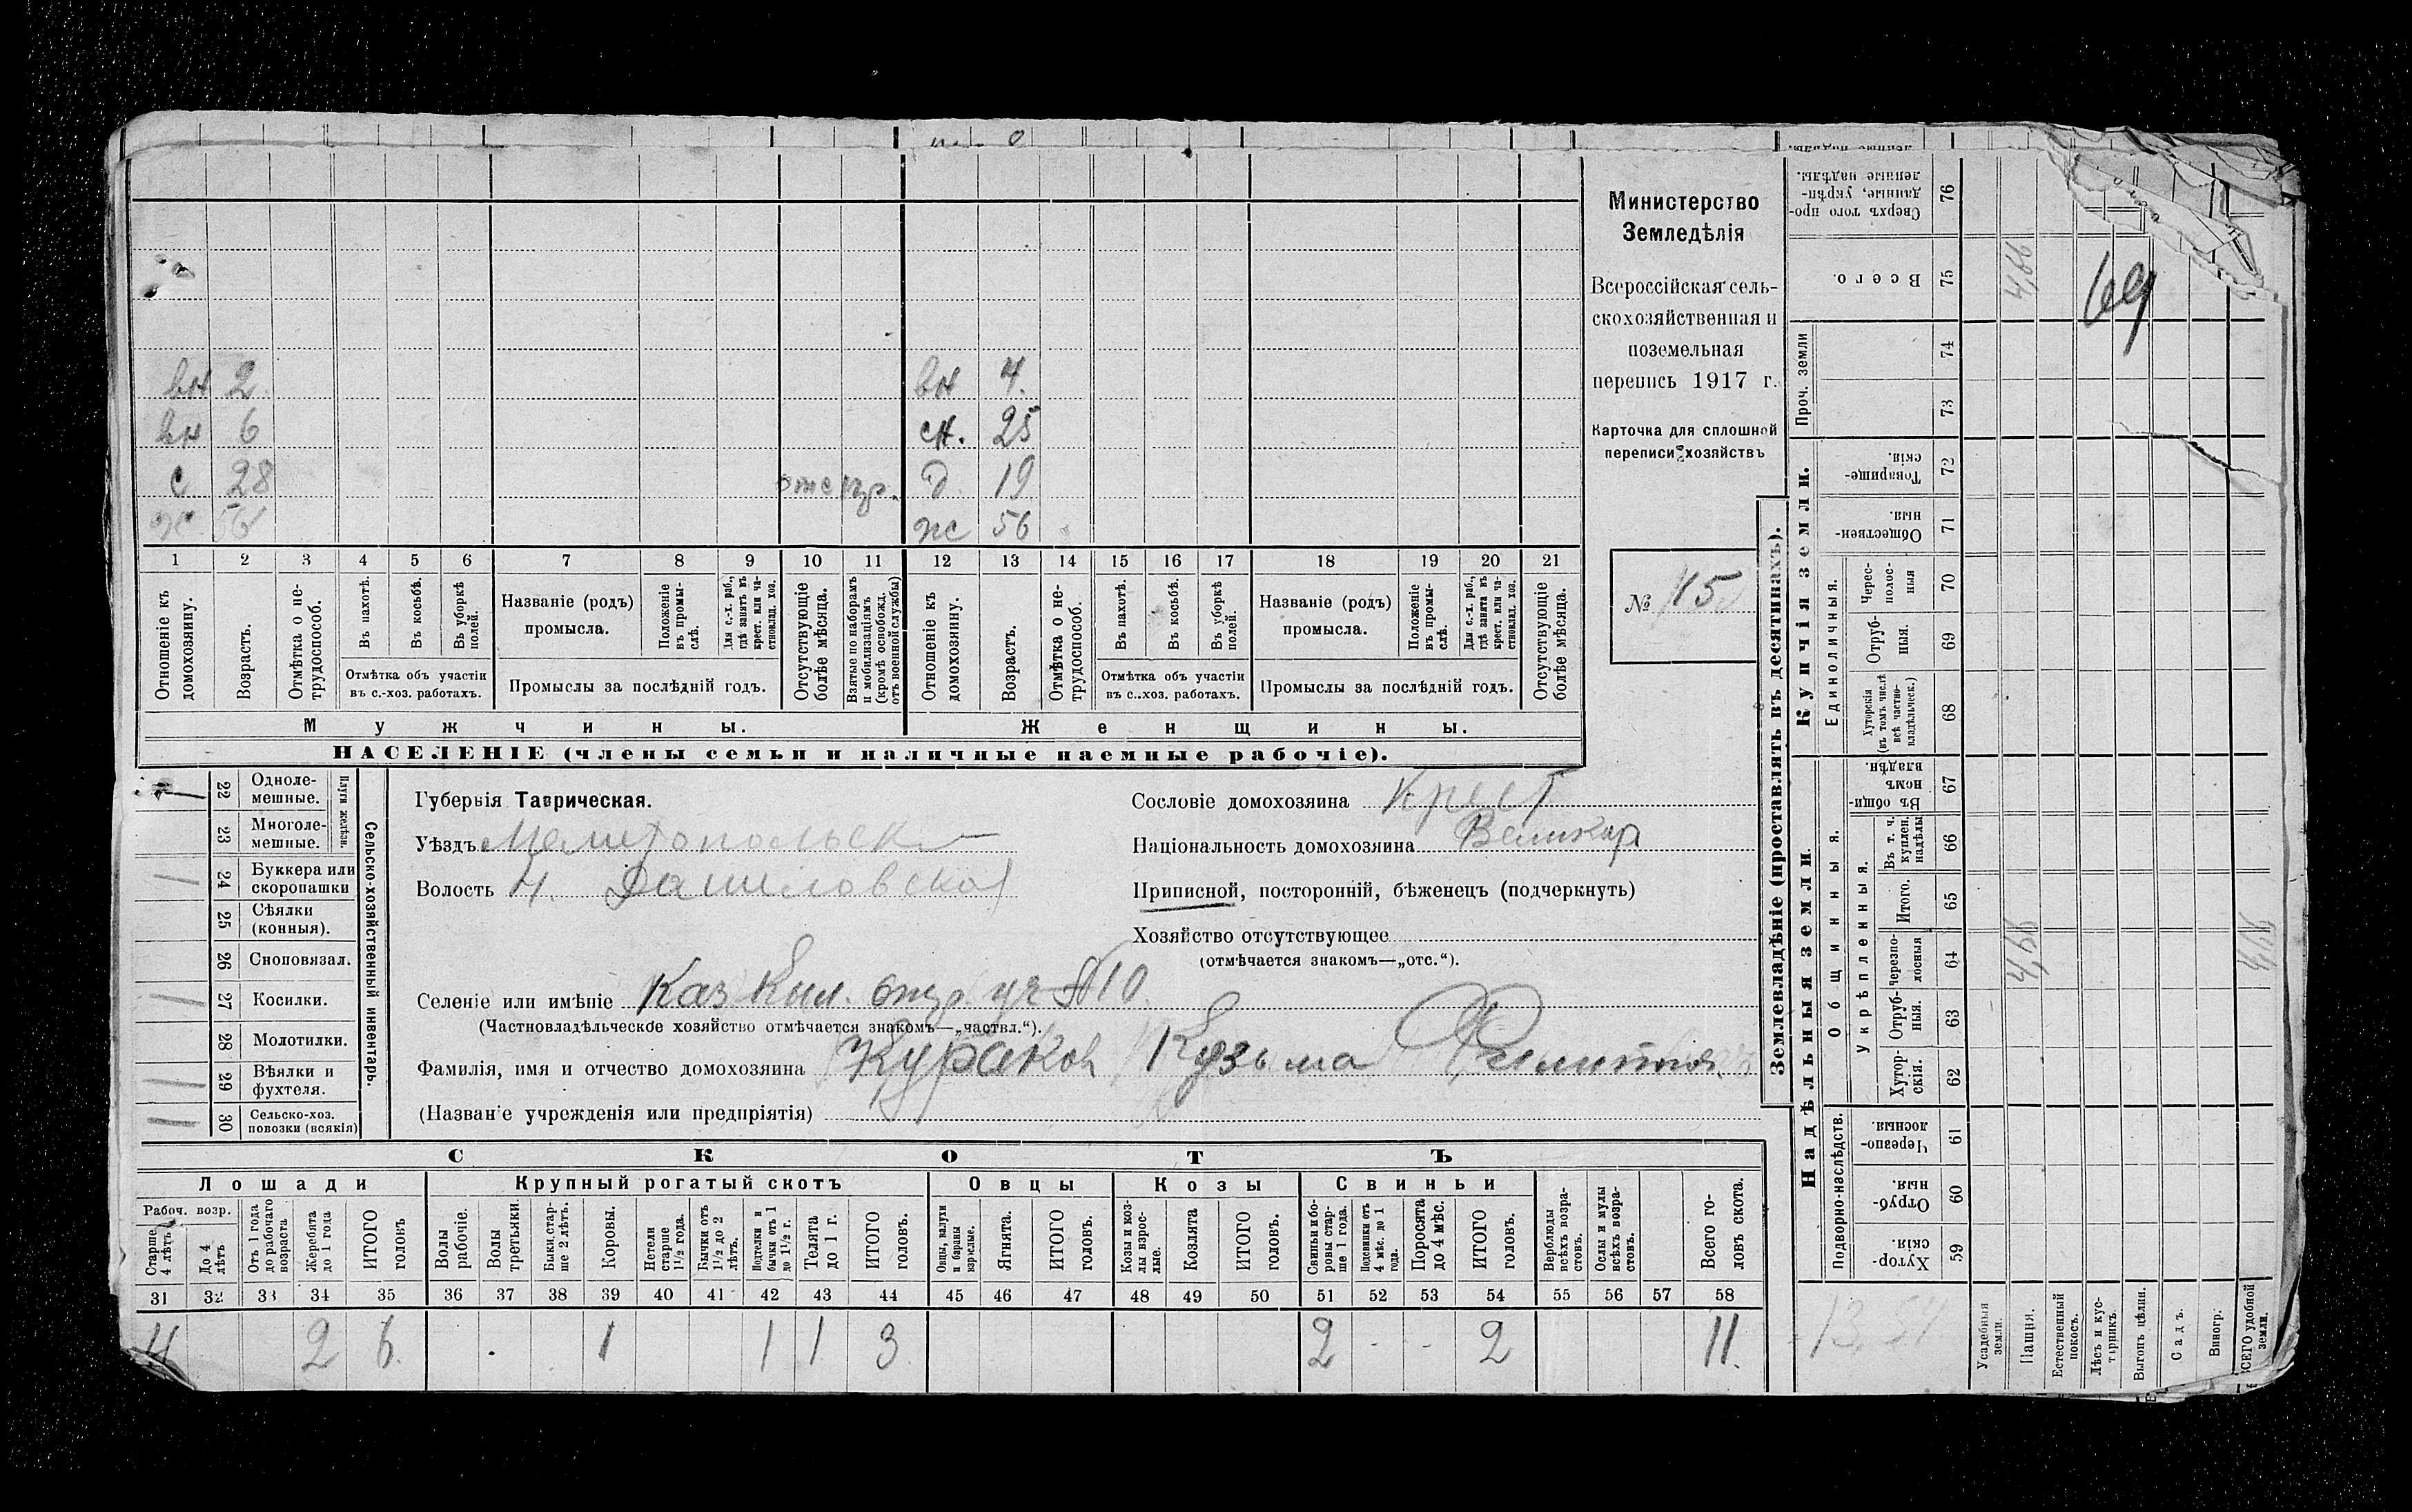 Министерство
Земледѣлія
Всероссійская сель-
скохозяйственная и
поземельная
перепись 1917 г.
Карточка для сплошной
переписи хозяйствъ
№ 15
вн 2. вн 4.
вн 6 сн. 25
с 28 д 19
ж 56
1 2 3 4 5 6 7 8 9 10 11 12 13 14 15 16 17 18 19 20 21
Отношеніе къ домохозяину.
Возрастъ.
Отмѣтка о не-трудоспособ.
Въ пахотѣ.
Въ косьбѣ.
Въ уборкѣ полей.
Отмѣтка объ участіи
въ с.-хоз. работахъ.
Названіе (родъ)
промысла.
Положеніе въ промы-слѣ.
Для с.-х. раб., гдѣ занятъ въ крест. или ча-стновлад. хоз.
Промыслы за послѣдній годъ.
Отсутствующіе болѣе мѣсяца.
Взятые по наборамъ и мобилизаціямъ (кромѣ освобожд. отъ военной службы)
Отношеніе къ домохозяину.
Возрастъ.
Отмѣтка о не-трудоспособ.
Въ пахотѣ.
Въ косьбѣ.
Въ уборкѣ полей.
Отмѣтка объ участіи
въ с.-хоз. работахъ.
Названіе (родъ)
промысла.
Положеніе въ промы-слѣ.
Для с.-х. раб., гдѣ занята въ крест. или ча-стновлад. хоз.
Промыслы за послѣдній годъ.
Отсутствующіе болѣе мѣсяца.
Мужчины. Женщины.
НАСЕЛЕНІЕ (члены семьи и наличные наемные рабочіе).
22 Одноле-мешные.
23 Многоле-мешные.
Плуги желѣзн.
24 Буккера или скоропашки
25 Сѣялки (конныя).
26 Сноповязал.
27 Косилки.
28 Молотилки.
29 Вѣялки и фухтеля.
30 Сельско-хоз. повозки (всякія)
Сельско-хозяйственный инвентарь.
Губернія Таврическая.
Уѣздъ Мелитопольск
Волость Н. Даниловская
Селеніе или имѣніе Каз Кыл. отр. уч №10
(Частновладѣльческое хозяйство отмѣчается знакомъ—„частвл.“).
Фамилія, имя и отчество домохозяина Кураков Кузьма
(Названіе учрежденія или предпріятія)
Сословіе домохозяина Крест
Національность домохозяина Великор
Приписной, посторонній, бѣженецъ (подчеркнуть)
Хозяйство отсутствующее
(отмѣчается знакомъ—„отс.“).
СКОТЪ
Лошади Крупный рогатый скотъ Овцы Козы Свиньи
Рабоч. возр.
Старше 4 лѣтъ
До 4 лѣтъ
Отъ 1 года до рабочаго возраста
Жеребята до 1 года
ИТОГО головъ
Волы рабочіе.
Волы третьяки.
Быки стар-ше 2 лѣтъ.
Коровы.
Нетели старше 1½ года.
Бычки отъ 1½ до 2 лѣтъ.
Подтелки и бычки отъ 1 до 1½ г.
Телята до 1 г.
ИТОГО головъ.
Овцы, валухи и бараны взрослые.
Ягнята.
ИТОГО головъ.
Козы и коз-лы взрос-лые.
Козлята
ИТОГО головъ.
Свиньи и бо-ровы стар-ше 1 года.
Подсвинки отъ 4 мѣс. до 1 года.
Поросята до 4 мѣс.
ИТОГО головъ.
Верблюды всѣхъ возра-стовъ.
Ослы и мулы всѣхъ возра-стовъ.
Всего го-ловъ скота.
31 32 33 34 35 36 37 38 39 40 41 42 43 44 45 46 47 48 49 50 51 52 53 54 55 56 57 58
4 2 6. 1 1 1 3 2 2 11.
Землевладѣніе (проставлять въ десятинахъ).
Надѣльныя земли Купчія земли.
Подворно-наслѣдств.
Общинныя.
Укрѣпленныя.
Единоличныя.
Проч. земли
Хутор-скія. 59
Отруб-ныя. 60
Черезпо-лосныя. 61
Хутор-скія. 62
Отруб-ныя. 63
Черезпо-лосныя 64
Итого. 65
Въ т. ч. куплен. надѣлы 66
Въ общи-номъ владѣн. 67
Хуторскія (въ томъ числѣ всѣ частно-владѣльческ.) 68
Отруб-ныя. 69
Черес-полос-ныя 70
Обществен-ныя. 71
Товарище-скія. 72
73
74
Всего. 75
Сверхъ того про-данные, укрѣп-ленные надѣлы. 76
Усадебныя земли.
Пашня.
Естественный покосъ.
Лѣсъ и кус-тарникъ.
Выгонъ цѣлин.
Садъ.
Виногр.
ВСЕГО удобной земли.
69